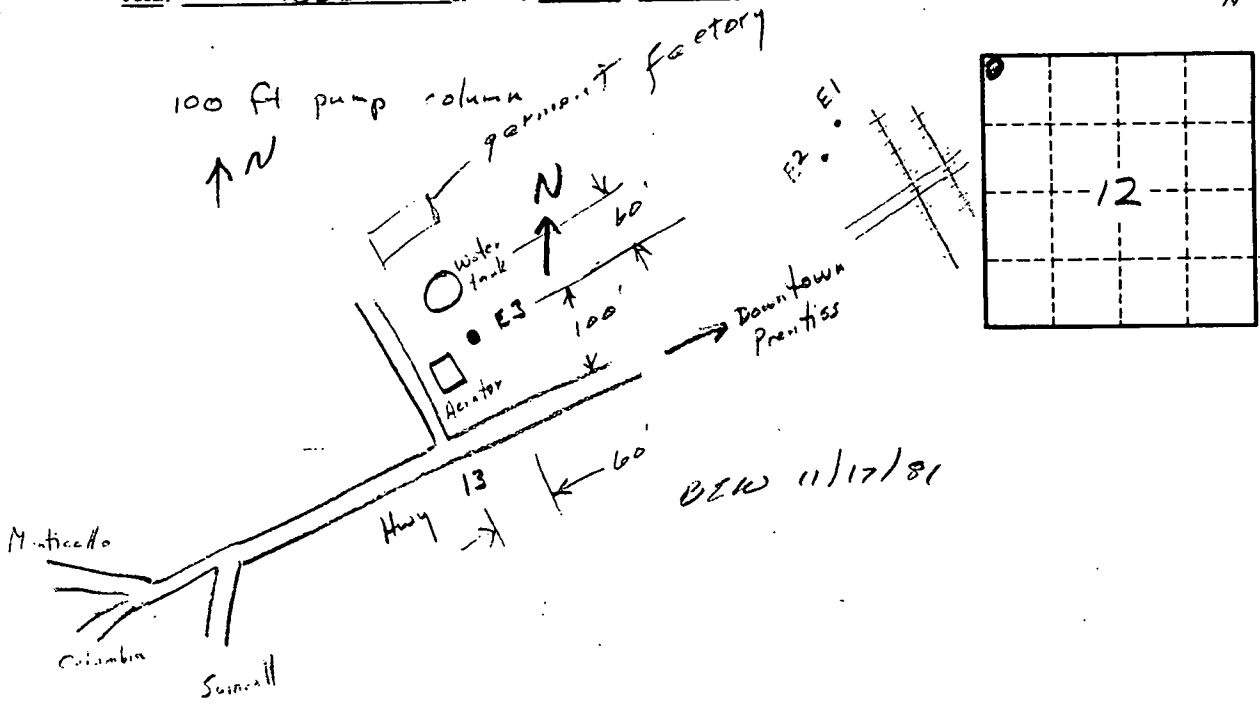 N
100 ft pump column
garment factory
N
N
60'
Water
tank
E3
100'
Aerator
E1
E2
12
Downtown
Prentiss
13
Hwy
60'
BEW 11/17/81
Monticello
Columbia
Sumrall